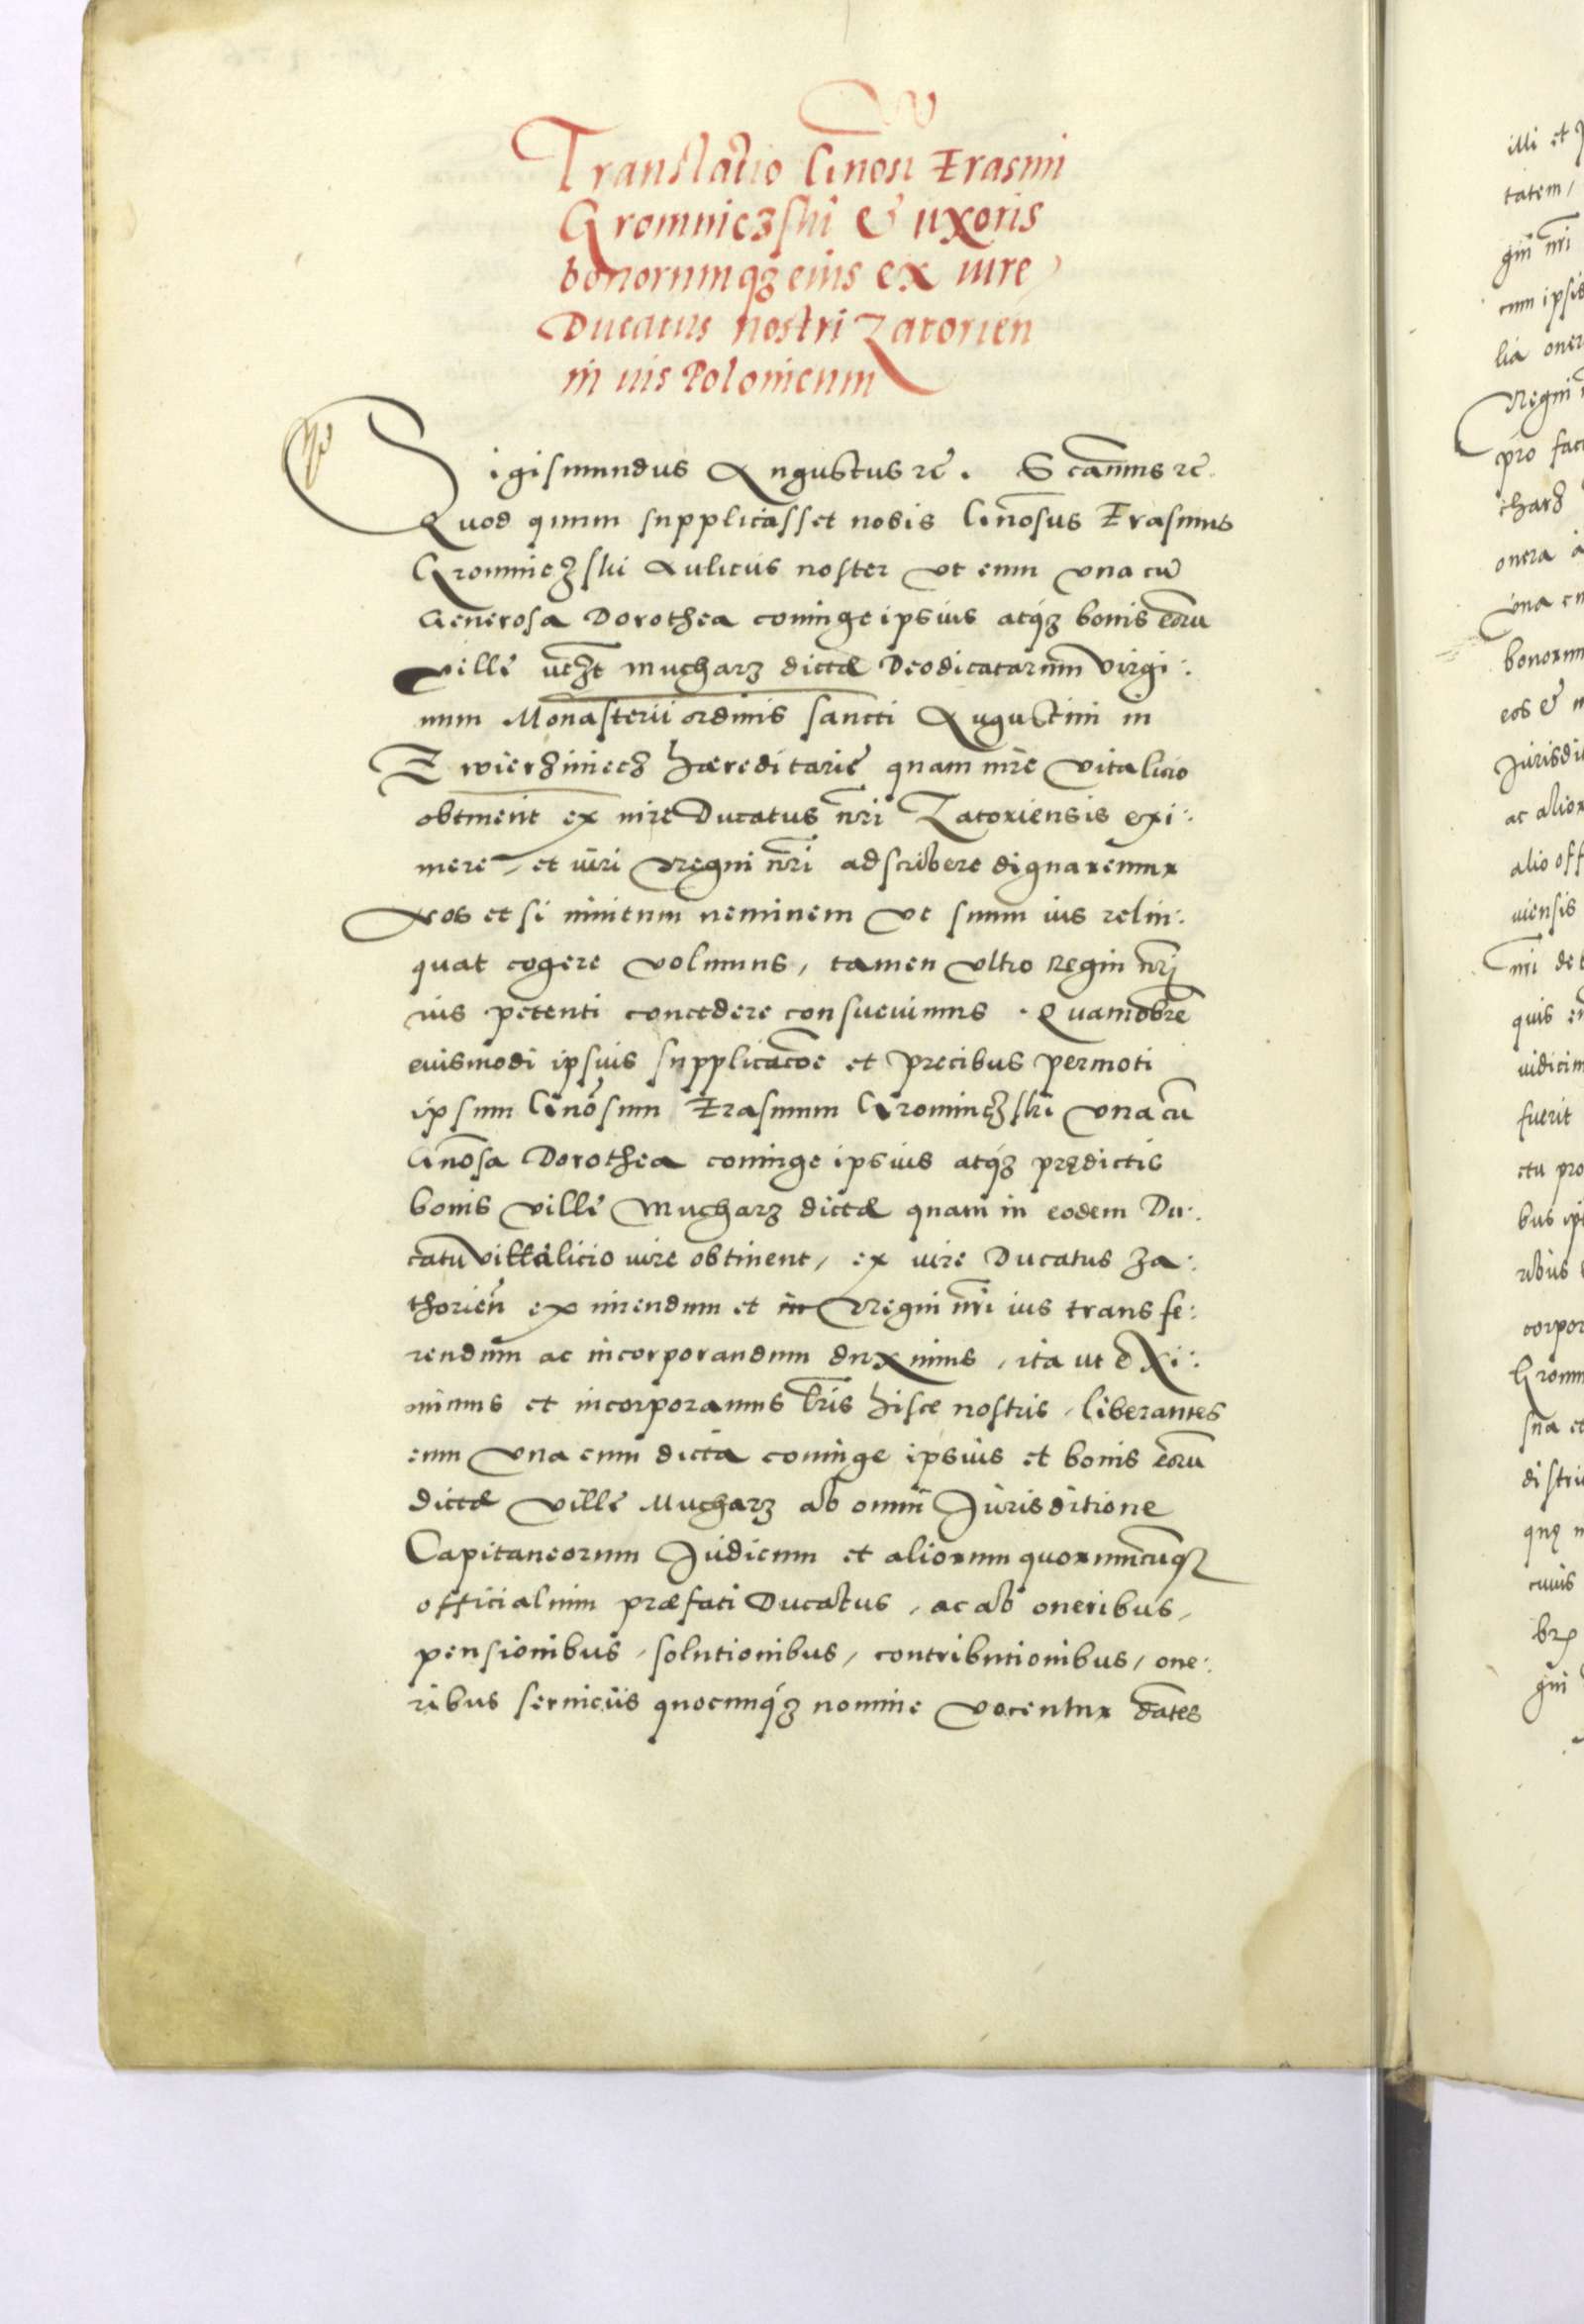 Translatio Gnosi Erasmi
Gromniczski & uxoris
bonorumqz eius ex iure
Ducatus nostri Zatorien
in ius Polonicum
Sigismundus Augustus rc̄. S cam̄us rc̄.
Quod quum supplicasset nobis Gn̄osus Erasmus
Gromniczski Aulicus noster vt eum vna cū
Generosa Dorothea coniuge ipsius atqz bonis eor̄u
Villę vczt Mucharz dictæ Deodicatarum Virgi:
num Monasterii ordinis sancti Augustini in
Zwierziniecz hæreditarię quam iure vitalicio
obtinent ex iure Ducatus nr̄i Zatoriensis exi:
mere, et iuri Regni nr̄i adscribere dignaremur
Nos et si inuitum neminem vt suum ius relin:
quat cogere volumus, tamen vltro Regni nr̄i
ius petenti concedere consueuimus. Quamobrē
eiusmodi ipsius supplicac̄oe et precibus permoti
ipsum Gn̄osum Erasmum Gromniczski vna cū
Gn̄osa Dorothea coniuge ipsius atqz prędictis
bonis villę Mucharz dictæ quam in eodem Du:
catu vittalicio iure obtinent, ex iure Ducatus Za:
thorień eximendum et in Regni nr̄i ius transfe:
rendum ac incorporandum duximus, ita ut eXi:
mimus et incorporamus lr̄is hisce nostris, liberantes
eum vna cum dicta coniuge ipsius et bonis eor̄u
dictæ villę Mucharz ab omni Jurisditione
Capitaneorum Judicum et aliorum quorumcunq
officialium præfati Ducatus, ac ab oneribus,
pensionibus, solutionibus, contributionibus, one:
ribus seruiciis quocunqz nomine vocentur dātes
illi et
tatem,
gni nr̄i
cum ipsis
lia oner
Regni
pro fac
charz
onera a
vna cu
bonorum
eos &
Jurisdit
ac alior
alio off
uiensis
quis
iudicim
fuerit
ctu pro
bus ip
ribus
corpor
Gromn
sua et
distri
quę
cuius
gni